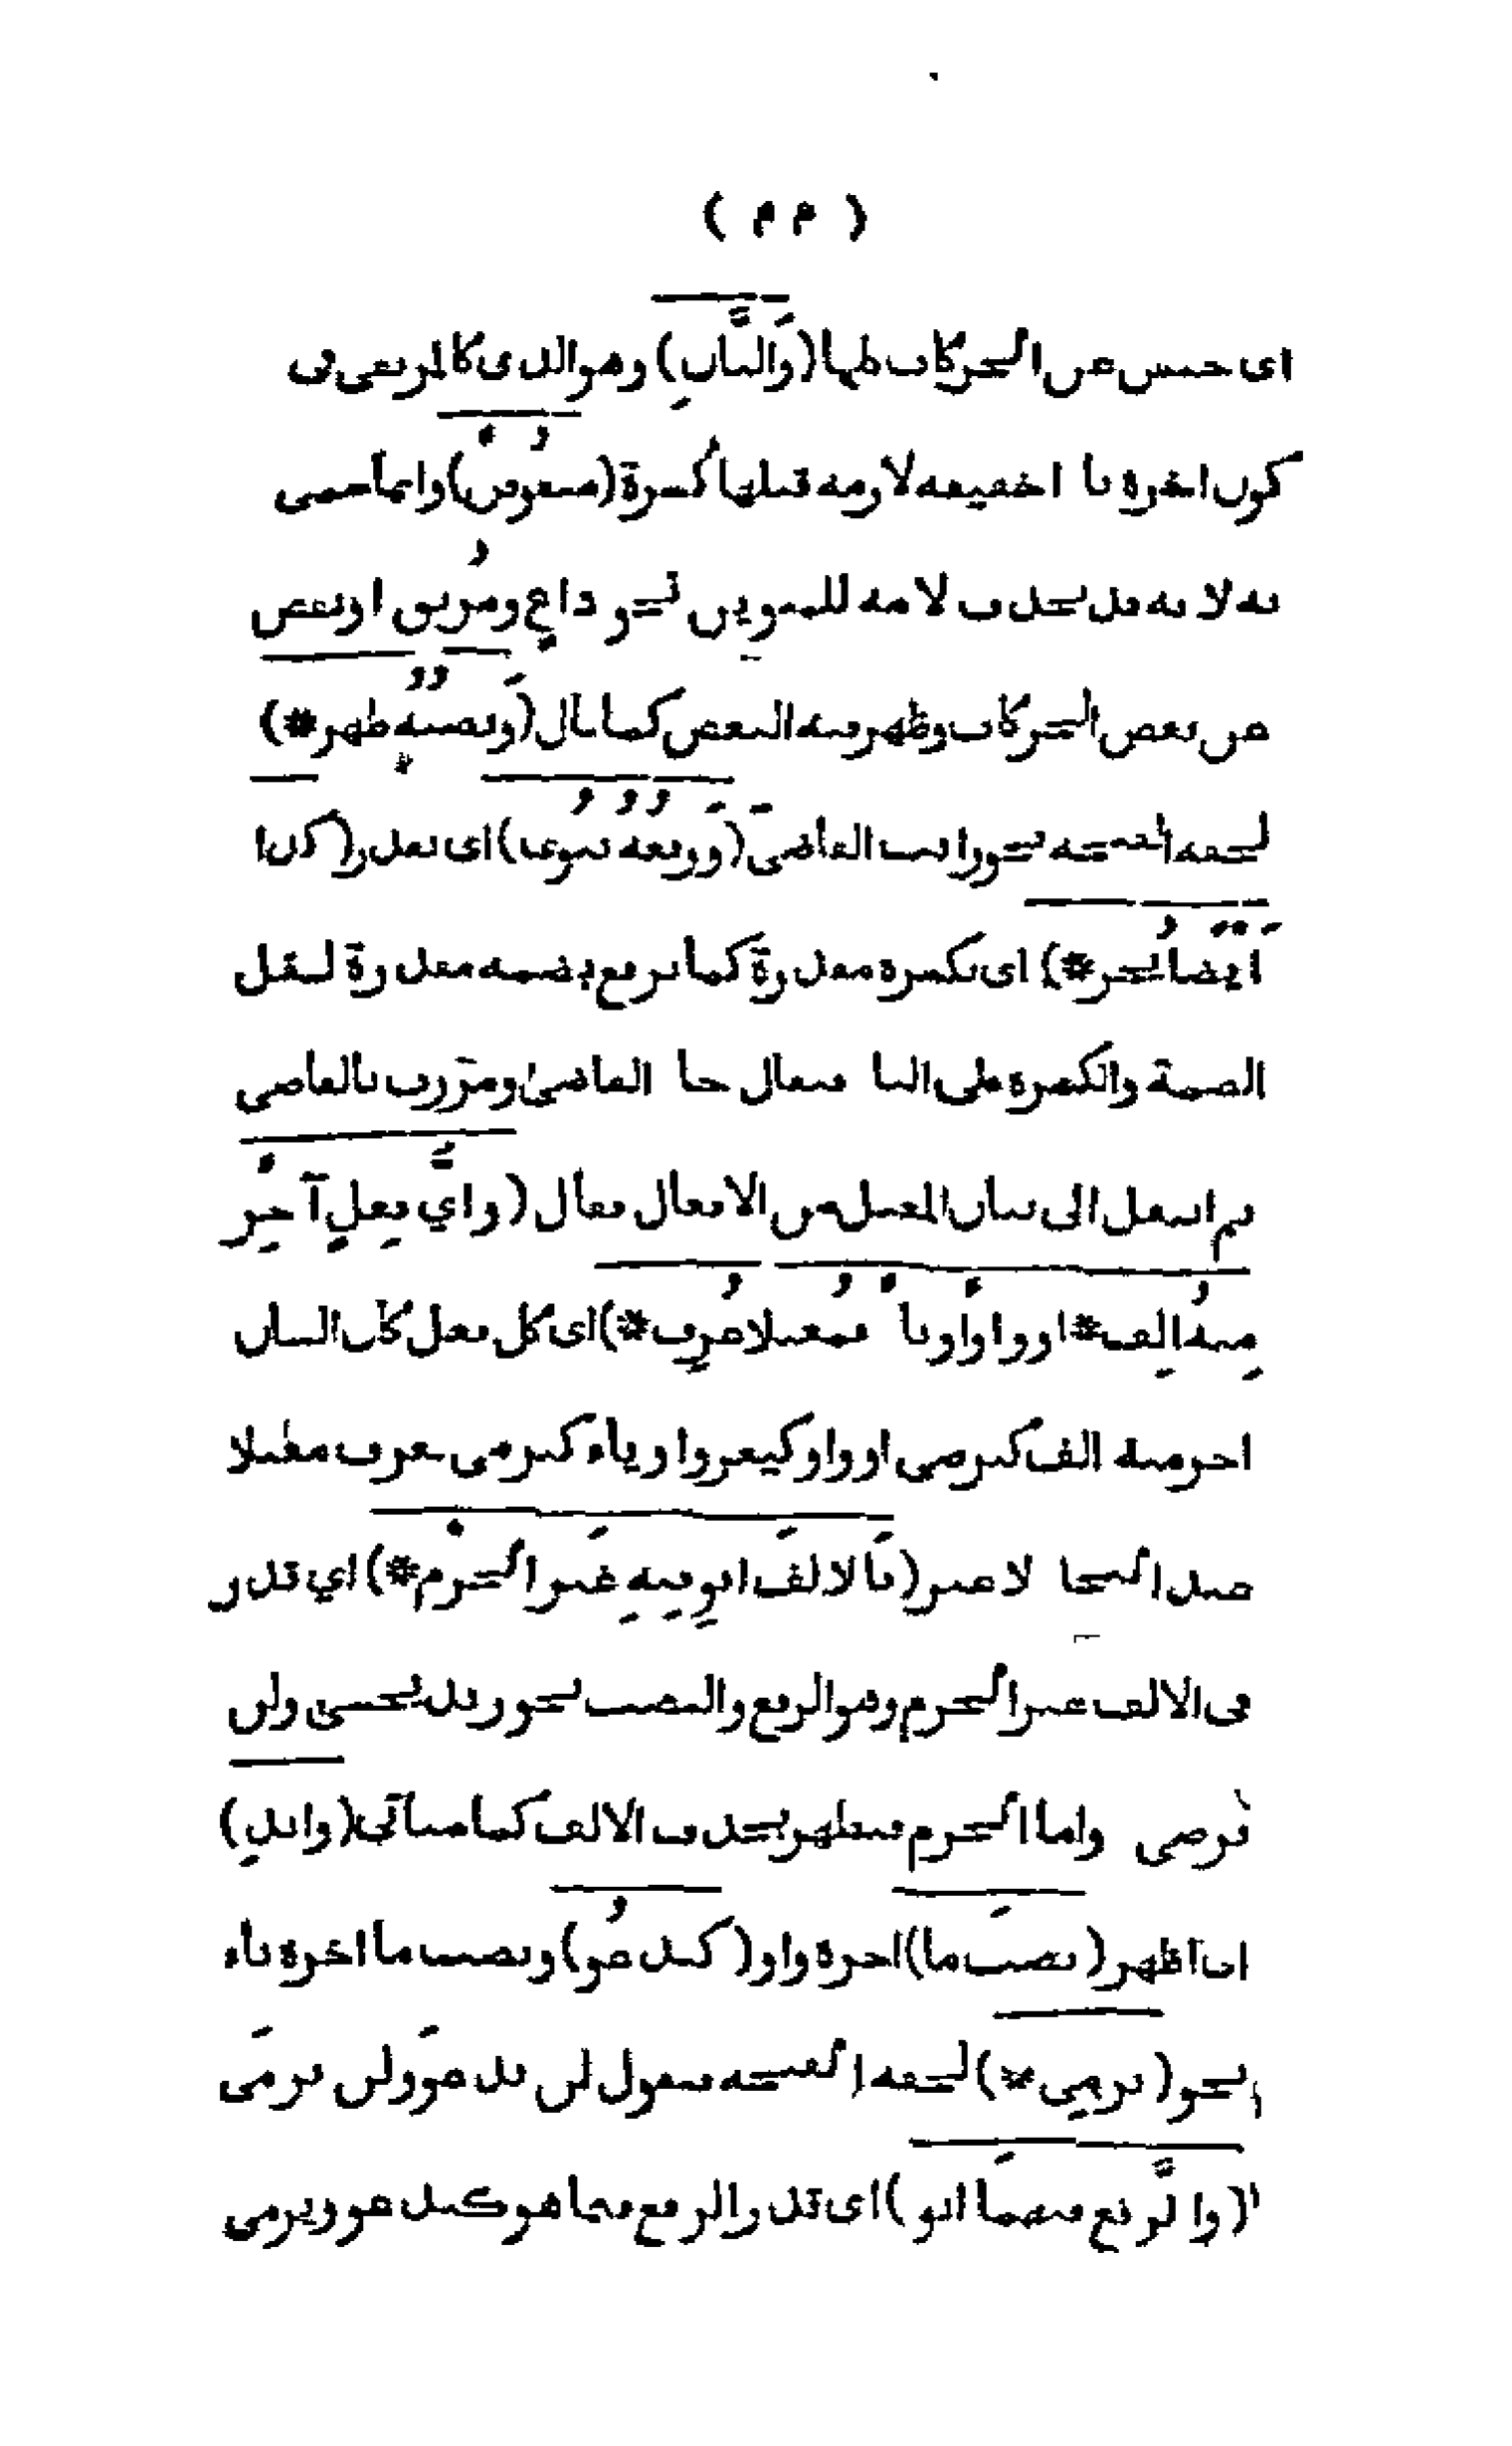 ( ٢٢ )
اى حبس عن الحركات كلها (وَالثَّانِ) وهو الذى كالمرتقى فى
كون اخره يا ‌ خفيفة لازمة قبلها كسرة (منقوصٌ) وانما سمى
به لا نه قد يحذف لامه للتنوين نحو داعٍ ومرتقٍ او نقص
من بعض الحركات وظهر فيه البعض كما قال (وَنصبُهُ ظهر*)
لخفة الفتحة نحو رايت القاضىَ (وَرفعُهُ يُنوى) اى يقدر (كذا
اَيضًا يُجر*) اى بكسره مقدرة كما يرفع بضمه مقدرة لثقل
الضمة والكسرة على اليا فيقال جا القاضىْ ومررت بالقاضى
ثم انتقل الى بيان المعتل من الافعال فقال (واىُّ فِعلٍ آخِر
مِنهُ اَلِف* او واوٌ او يا ‌ فمعتلا عُرِف*) اى كل فعل كان
اخر منه الف كيرضى او واو كيغزوا وياء كيرمى يعرف معتلا
عند النحا لا غير (بَالالفَ انوِ فِيهِ غَيرَ الجزم*) اي قدر
فى الالف غير الجزم وهو الرفع والنصب نحو زيد يخشى ولن
يرضى واما الجزم فيظهر بحذف الالف كما سيأتى (وابدِ)
اى اظهر (نصبَ ما) اخرة واو (كيدعو) ونصب ما اخرة ياء
نحو (يرمِى*) لخفة الفتحة فيقول لن يدعوَ ولن يرمىَ
(والرَّفع فيهمَا انو) اى قدر الرفع فيما هو كيدعو ويرمى